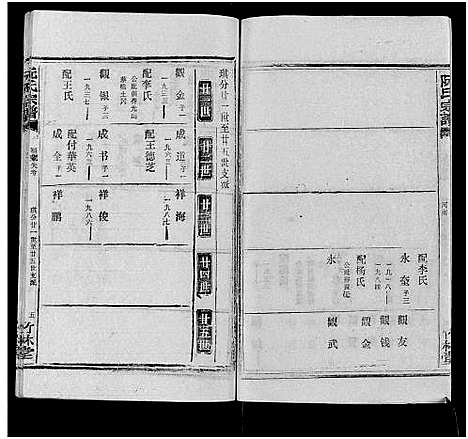 阮氏宗譜
河南
竹林堂
配李氏
永奎 子三
一九一八—
一九八四
配杨氏
永
觀友
觀钱
觀金
觀武
琪分廿一世至廿五世支派
廿一世
廿二世
廿三世
廿四世
廿五世
觀金 子一
一九三三—
配李氏
觀銀 子二
一九三七—
配王氏
成道 子一
一九六三—
配王德芝
成书 子一
一九六三—
配付華英
成全
祥海
一九八七—
祥俊
一九八六—
祥鹏
阮氏宗譜
琪分廿一世至廿五世支派
五
竹林堂